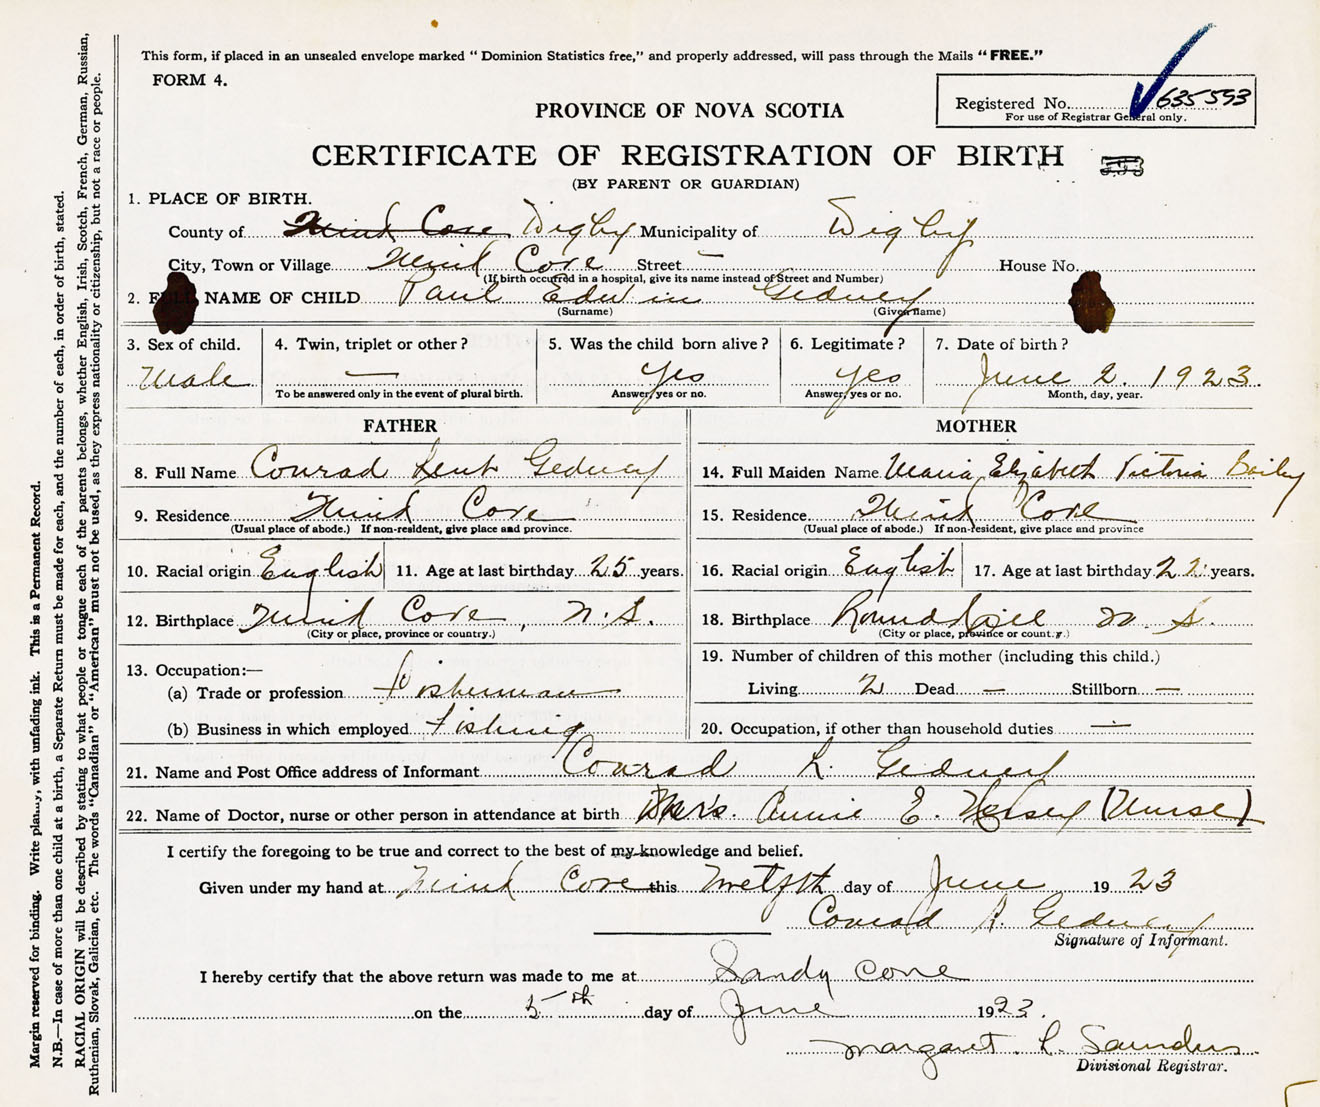 This form, if placed in an unsealed envelope marked "Dominion Statistics free," and properly addressed, will pass through the Mails "FREE."
FORM 4.
Registered No. 635593
For use of Registrar General only.
PROVINCE OF NOVA SCOTIA
CERTIFICATE OF REGISTRATION OF BIRTH
(BY PARENT OR GUARDIAN)
1. PLACE OF BIRTH.
County of Mink Cove Digby Municipality of Digby
City, Town or Village Mink Cove Street — House No.
(If birth occurred in a hospital, give its name instead of Street and Number)
2. FULL NAME OF CHILD Paul Edwin Gedney
(Surname) (Given name)
3. Sex of child. 4. Twin, triplet or other? 5. Was the child born alive? 6. Legitimate? 7. Date of birth?
Male — Yes Yes June 2. 1923.
To be answered only in the event of plural birth. Answer, yes or no. Answer, yes or no. Month, day, year.
FATHER
8. Full Name Conrad Kent Gedney
9. Residence Mink Cove
(Usual place of abode.) If non-resident, give place and province.
10. Racial origin English 11. Age at last birthday 25 years.
12. Birthplace Mink Cove, N.S.
(City or place, province or country.)
13. Occupation:—
(a) Trade or profession Fisherman
(b) Business in which employed Fishing
MOTHER
14. Full Maiden Name Maria Elizabeth Victoria Baily
15. Residence Mink Cove
(Usual place of abode.) If non-resident, give place and province
16. Racial origin English 17. Age at last birthday 22 years.
18. Birthplace Round Hill N.S.
(City or place, province or country.)
19. Number of children of this mother (including this child.)
Living 2 Dead — Stillborn —
20. Occupation, if other than household duties —
21. Name and Post Office address of Informant Conrad K. Gedney
22. Name of Doctor, nurse or other person in attendance at birth Mrs. Annie E. Hersey (Nurse)
I certify the foregoing to be true and correct to the best of my knowledge and belief.
Given under my hand at Mink Cove this Twelfth day of June 1923
Conrad K. Gedney
Signature of Informant.
I hereby certify that the above return was made to me at Sandy Cove
on the 15th day of June 1923.
Margaret L. Saunders
Divisional Registrar.
Margin reserved for binding. Write plainly, with unfading ink. This is a Permanent Record.
N.B.—In case of more than one child at a birth, a Separate Return must be made for each, and the number of each, in order of birth, stated.
RACIAL ORIGIN will be described by stating to what people or tongue each of the parents belongs, whether English, Irish, Scotch, French, German, Russian,
Ruthenian, Slovak, Galician, etc. The words "Canadian" or "American" must not be used, as they express nationality or citizenship, but not a race or people.